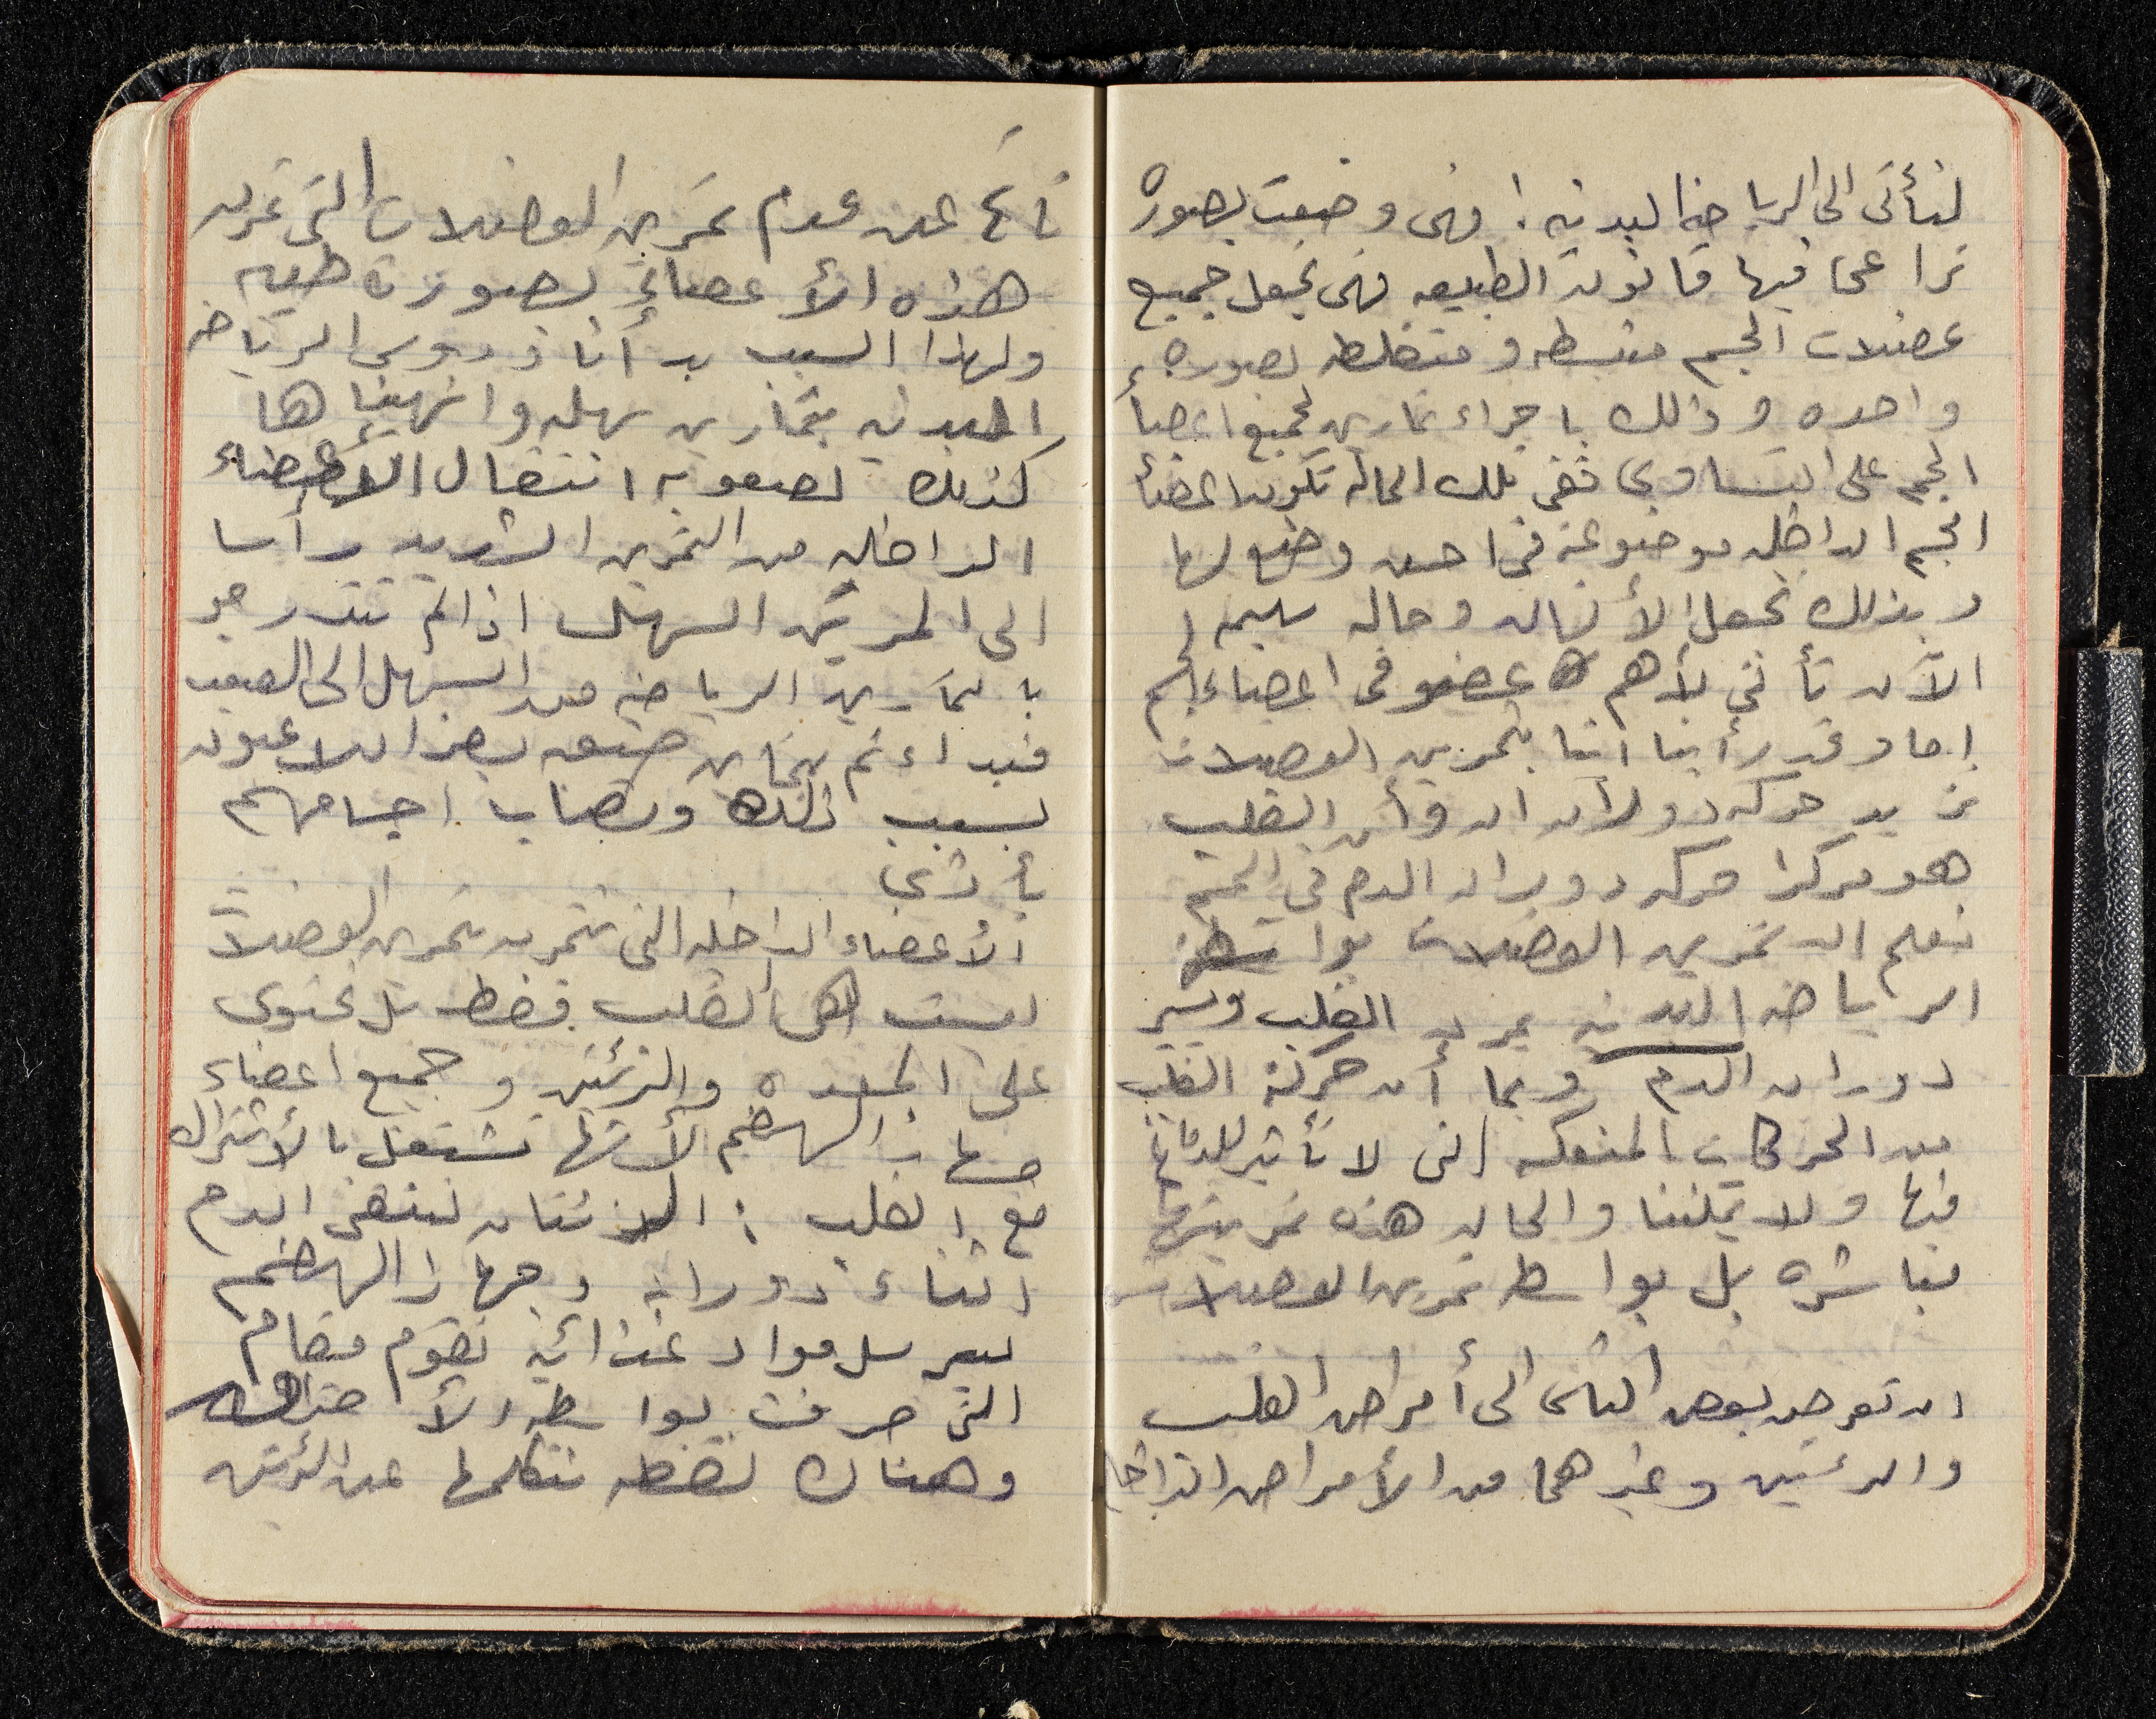 لنأتى الى الرياضه البدنيه : فهى وضعت بصوره
تراعى فيها قانون الطبيعه فهى تجعل جميع
عضلات الجسم منبسطه و متقلطه بصوره
واحده و ذلك باجراء تمارين لجميع اعضأ
الجسم على التساوى ففى تلك الحاله تكون اعضأ
الجسم الداخليه موضوعة فى احسن وضع لها
و بذلك تجعل الأنسان و حاله سليمه
الآن نأتى لأهم عضو فى اعضاء الجسم
اما وقد رأينا اننا بتمرين العضلات
نزيد حركه دوران الدم وأن القلب
هو مركز حركه دوران الدم فى الجسم
نعلم ان تمرين العضلات بواسطة
الرياضه البدنيه يمرن القلب ويسير
دوران الدم وبما أن حركة القلب
من الحركات المنعكسه التى لا تأثير للدماغ
فيها ولا يمكننا والحاله هذه تمرينها
مباشره بل بواسطه تمرين العضلات
ان تعرض بعض الناس الى أمراض القلب
والرئتين وغيرهما من الأمراض الداخليه
ناتج عن عدم تمرين العضلات التى تمرن
هذه الأعضاء بصورة طبيه
ولهذا السبب بدأنا دروس الرياضه
البدنيه بتمارين سهله وانهيناها
كذلك لصعوبه انتقال الأعضاء
الداخليه من التمرين الشديد رأسا
الى المرين السهل اذا لم نتدرجو
بالتمارين الرياضه من السهل الى الصعب
فنبدائهم بتمارين صعبه يضر اللاعبون
بسبب ذلك وتصاب اجسامهم
بأذى
الأعضاء الداخليه التى تتمرن بتمرين العضلات
ليست هى القلب فقط بل تحتوى
على المعده والرئتين و جميع اعضاء
جهاز الهضم لأنها تشتغل بالأشتراك
مع القلب : الرئتان لتنقى الدم
اثناء دورانه و جهاز الهضم
ليرسل مواد غذائيه تقوم مقام
التى صرفت بواسطه الأحتراق
وهناك نقطه نتكلمها عن الرئتين